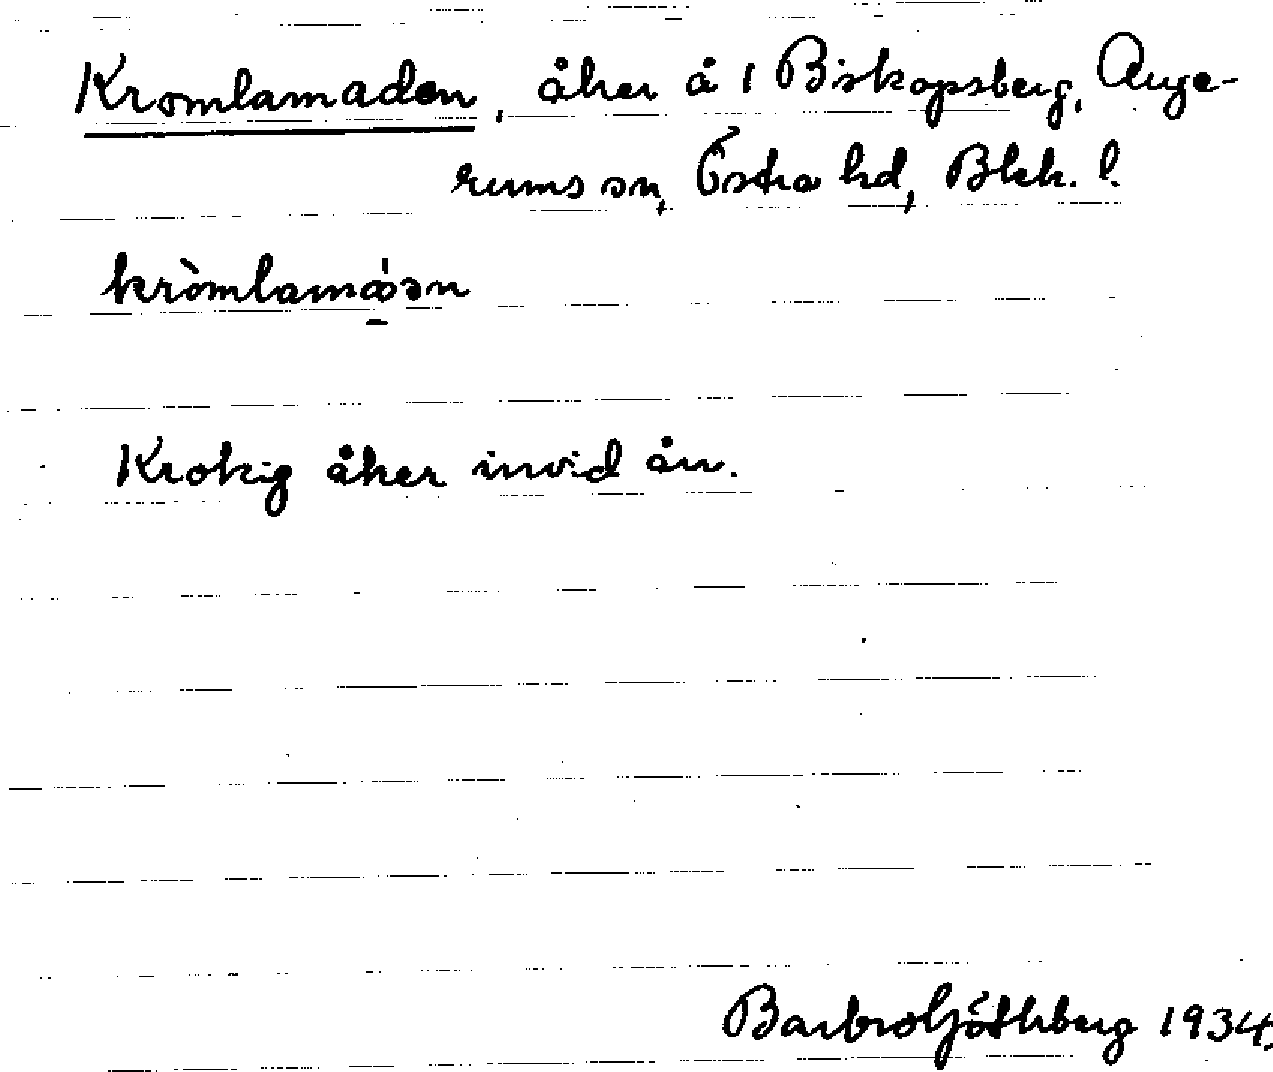 Kromlamaden, åker å 1 Biskopsberg, Auge-
rums sn, Östra hd, Blek. l.
kròmlamáən
Krokig åker invid ån.
Barbro Göthberg 1934.